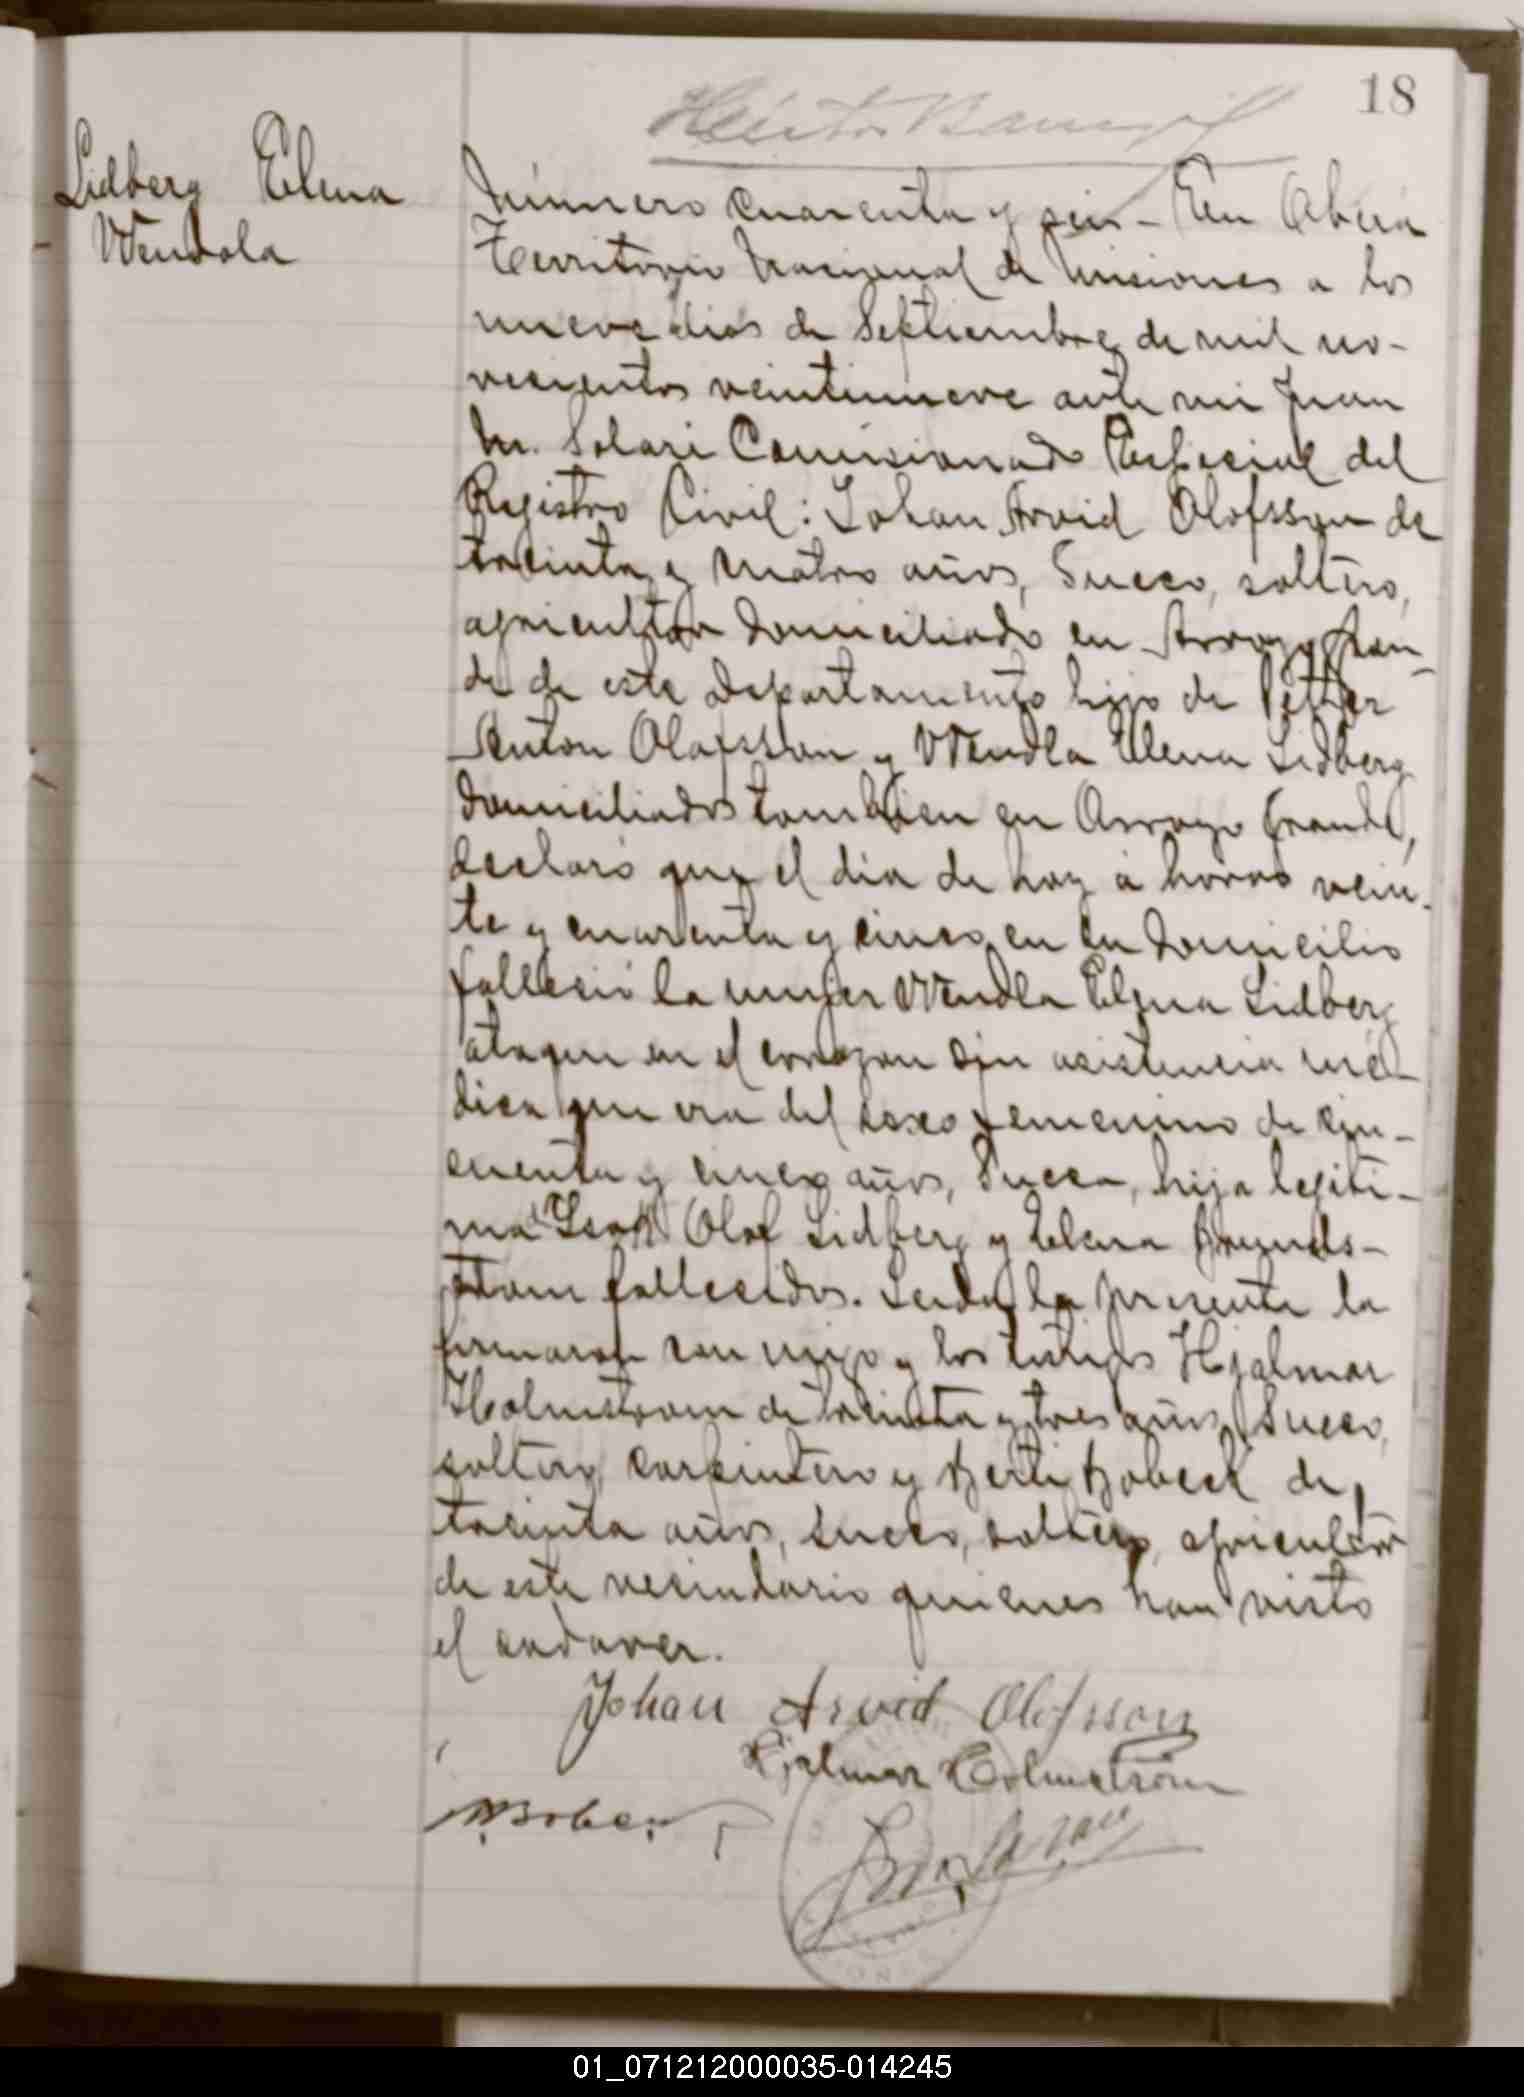 18
Lidberg Elena
Wendola
Número cuarenta y seis - En Oberá
Territorio Nacional de Misiones a los
nueve dias de Septiembre de mil no-
vecientos veintinueve ante mi Juan
M. Solari Comisionado Especial del
Registro Civil: Johan Arvid Olofsson de
treinta y cuatro años, Sueco, soltero,
agricultor domiciliado en Arroyo Gran-
de de este departamento hijo de Petter
Anton Olofsson y Wendla Elena Lidberg
domiciliados tambien en Arroyo Grande,
declaró que el dia de hoy á horas vein-
te y cuarenta y cinco en su domicilio
falleció la mujer Wendla Elena Lidberg
ataque en el corazon sin asistencia mé-
dica que era del sexo femenino de cin-
cuenta y cinco años, Sueca, hija legiti-
ma Olof Lidberg y Elena
fallecidos. Leida la presente la
firmaron con migo y los testigos Hjalmar
Holmstrom de treinta y tres años, Sueco,
soltero, carpintero y de
treinta años, sueco, soltero, agricultor
de este vecindario quienes han visto
el cadaver.
Johan Arvid Olofsson
Hjalmar Holmström
01_071212000035-014245